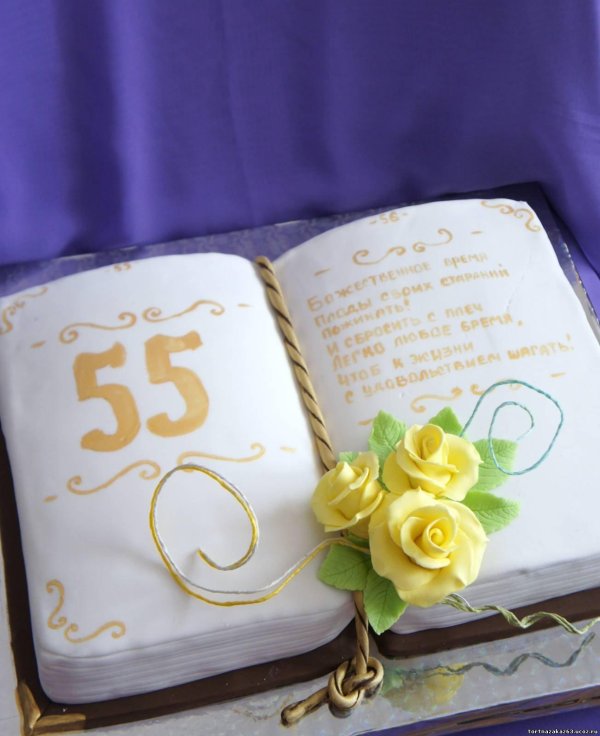 55
55
-56-
Божественное время
плоды своих стараний
пожинать!
И сбросить с плеч
легко любое бремя,
чтоб к жизни
с удовольствием шагать!
tortnazakaz63.ucoz.ru